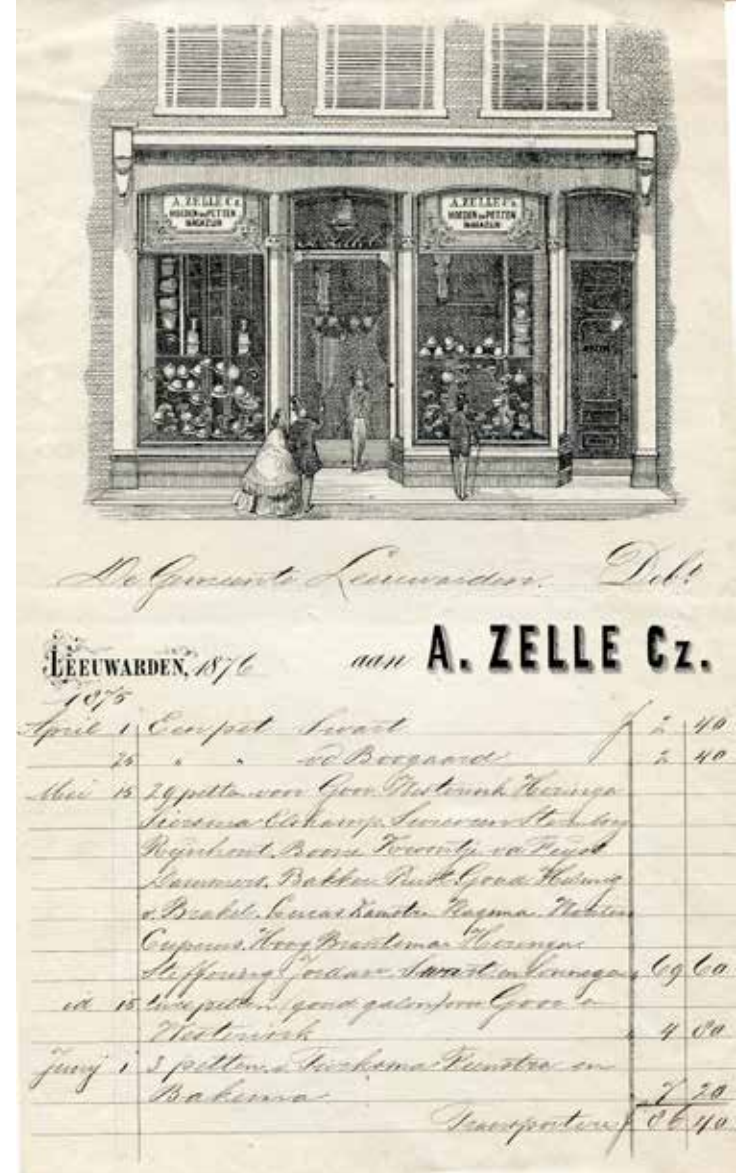 A. ZELLE Cz.
HOEDEN en PETTEN
MAGAZIJN
A. Zelle C
A. ZELLE Cz.
HOEDEN en PETTEN
MAGAZIJN
De Gemeente Leeuwarden. Debt
LEEUWARDEN, 1876 aan A. ZELLE Cz.
1875
April 1 Een pet Swart f 2 40
26 " " vd Boogaard 2 40
Mei 15 29 petten voor Goor Westerink Heringa
Siersma Elskamp
Rijnhout Boom Kroontje vd
Dammers. Bakker Goud
v. Brakel. Lucas Kamstra Hagema. Houten
Cuperus. Hoog Brantsma Heringa
Steffering Jordan Swart en 69 60
id 15 twee petten (goud galon) voor Goor en
Westerink " 4 80
Junij 1 3 petten Turksma Feenstra en
Bakema " 7 20
Transportere f 86 40